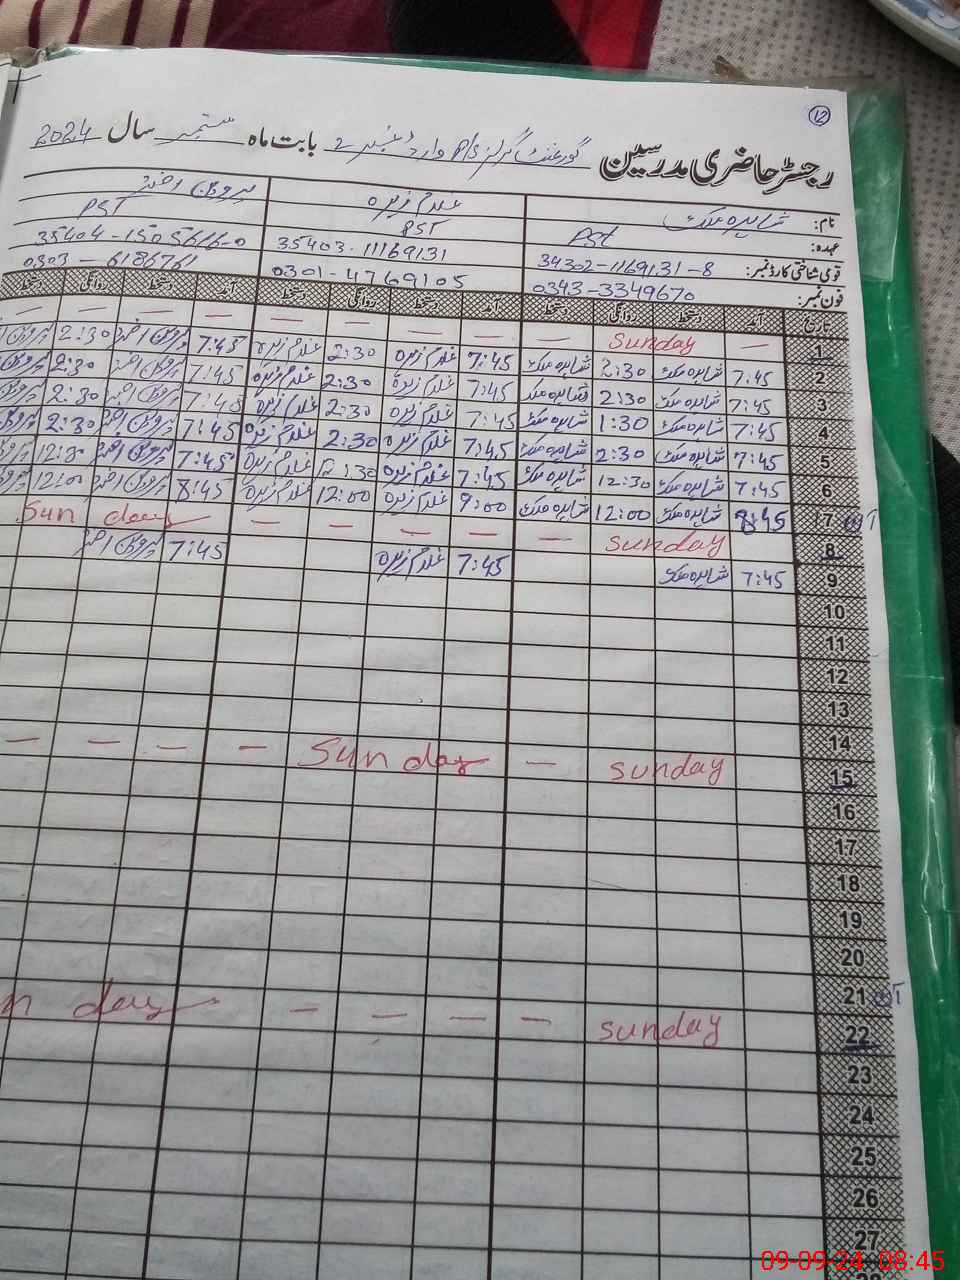 12
رجسٹر حاضری مدرسین گورنمنٹ گرلز P/S وارڈ نمبر 2 بابت ماہ ستمبر سال 2024
نام: شاہدہ ملک غلام زہرہ پروین اختر
عہدہ: Pst PST PST
قومی شناختی کارڈ نمبر: 34302-1169131-8 35403-11169131 35404-1505616-0
فون نمبر: 0343-3349670 0301-4769105 0303-6186761
تاریخ آمد دستخط روانگی دستخط آمد دستخط روانگی دستخط آمد دستخط روانگی دستخط
1 — Sunday — — — — — — — — —
2 7:45 شاہدہ ملک 2:30 شاہدہ ملک 7:45 غلام زہرہ 2:30 غلام زہرہ 7:45 پروین اختر 2:30 پروین
3 7:45 شاہدہ ملک 2:30 شاہدہ ملک 7:45 غلام زہرہ 2:30 غلام زہرہ 7:45 پروین اختر 2:30 پروین
4 7:45 شاہدہ ملک 1:30 شاہدہ ملک 7:45 غلام زہرہ 2:30 غلام زہرہ 7:45 پروین اختر 2:30 پروین
5 7:45 شاہدہ ملک 2:30 شاہدہ ملک 7:45 غلام زہرہ 2:30 غلام زہرہ 7:45 پروین اختر 2:30 پروین
6 7:45 شاہدہ ملک 12:30 شاہدہ ملک 7:45 غلام زہرہ 12:30 غلام زہرہ 7:45 پروین اختر 12:30 پروین
7 8:45 شاہدہ ملک 12:00 شاہدہ ملک 9:00 غلام زہرہ 12:00 غلام زہرہ 8:45 پروین اختر 12:00 پروین
8 sunday — — — — — Sun day
9 7:45 شاہدہ ملک 7:45 غلام زہرہ 7:45 پروین اختر
10
11
12
13
14
15 sunday — Sunday — — — —
16
17
18
19
20
21
22 sunday — — — — n day
23
24
25
26
27
28
09-09-24 08:45